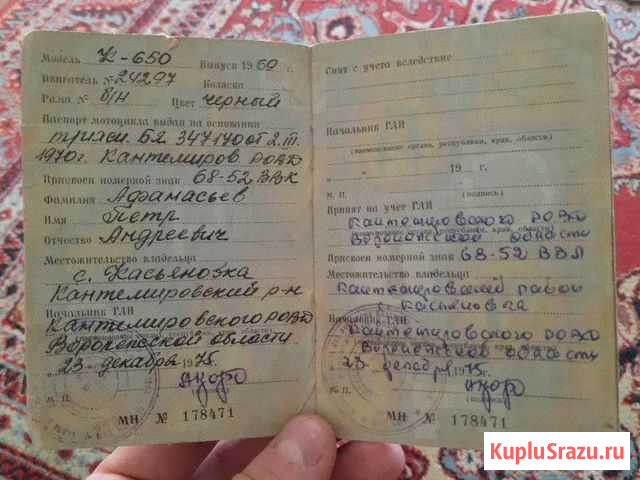 Модель К-650 Выпуск 1960 г.
Двигатель № 24297 Коляска
Рама № б/н Цвет черный
Паспорт мотоцикла выдан на основании
347170 от 2.III.
1970г. Кантемиров. РОВД
Присвоен номерной знак 68-52 ВВК
Фамилия Афанасьев
Имя Петр
Отчество Андреевич
Местожительство владельца
с. Касьяновка
Кантемировский р-н
Начальник ГАИ
Кантемировского РОВД
Воронежской области
"23" декабря 1975г.
М. П.
МН № 178471
Снят с учета вследствие
Начальник ГАИ
(наименование органа, республики, края, области)
19 г.
М. П. (подпись)
Принят на учет ГАИ
Кантемировского РОВД
Воронежской области
Присвоен номерной знак 68-52 ВВЛ
Местожительство владельца
Кантемировский район
с. Касьяновка
Начальник ГАИ
Кантемировского РОВД
Воронежской области
"23" декабря 1975г.
М. П. (подпись)
МН № 178471
KupluSrazu.ru